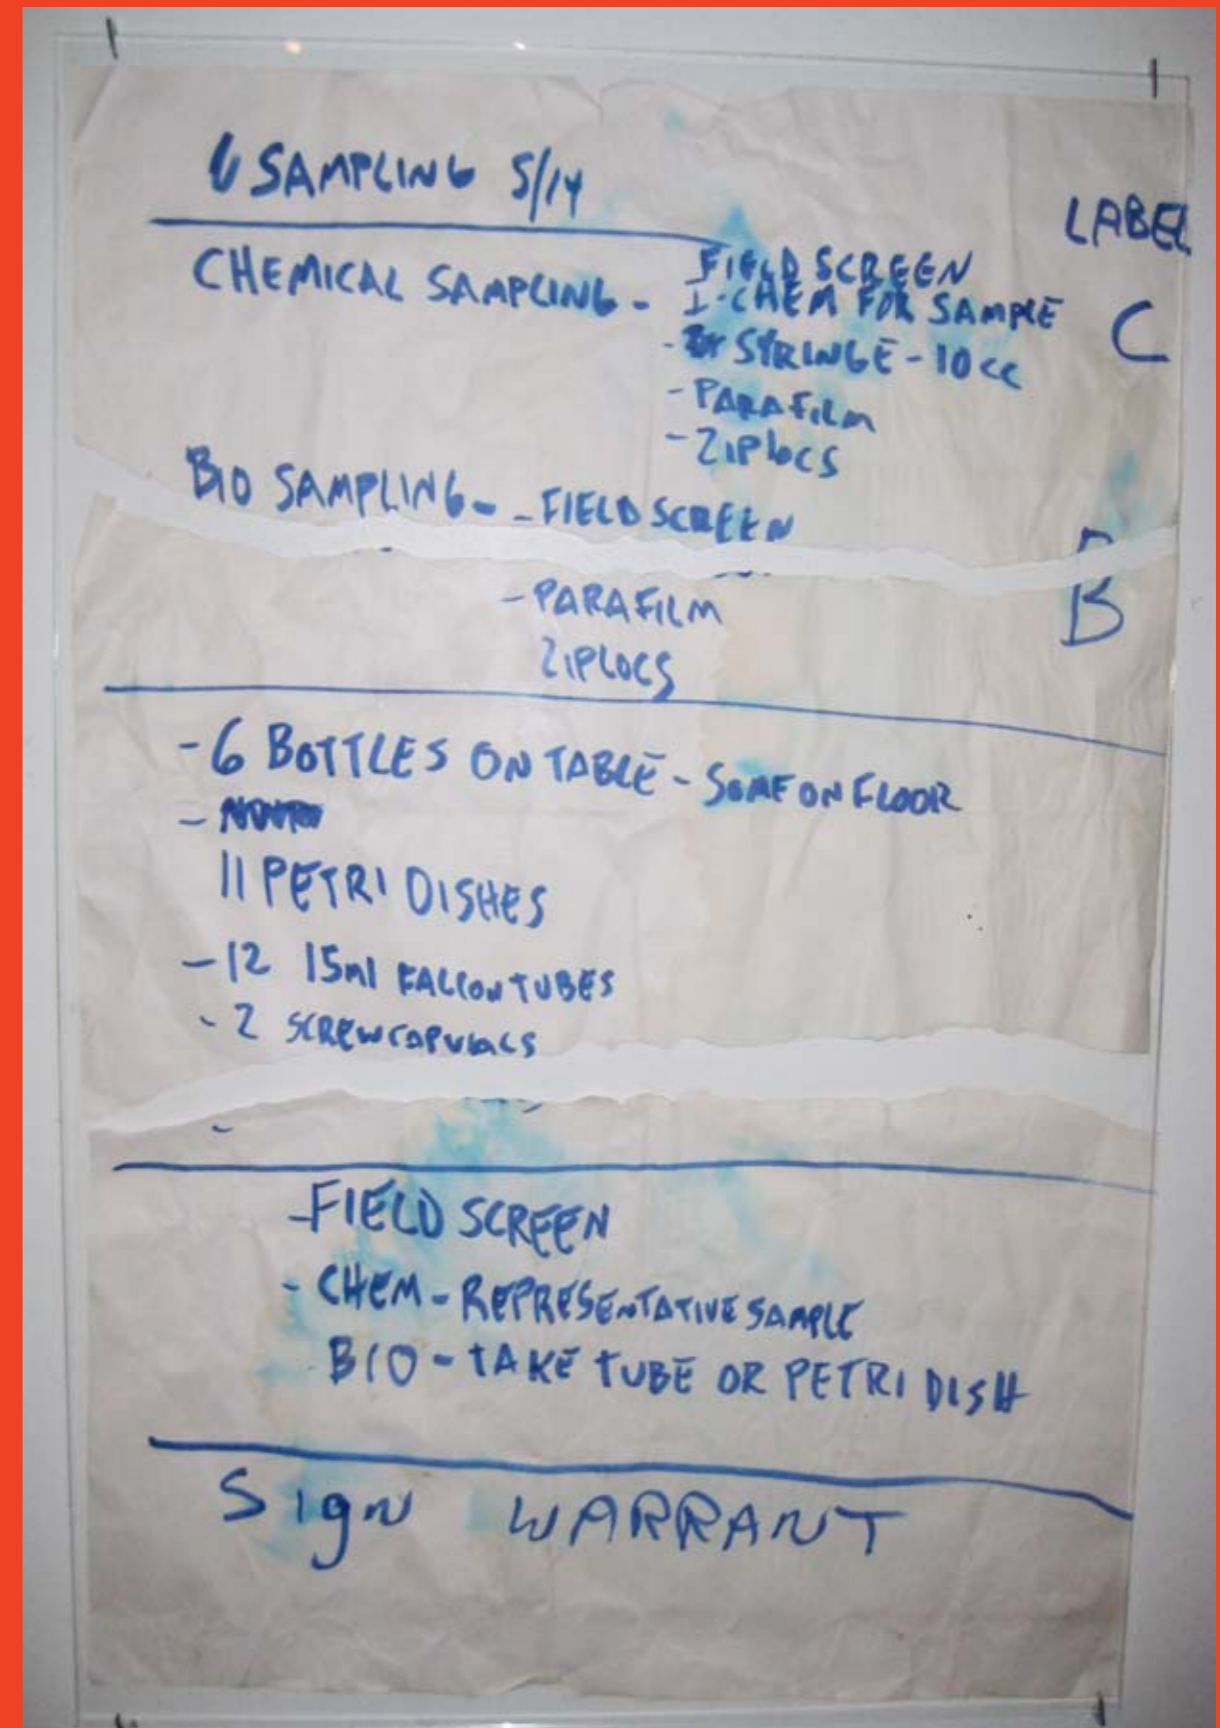 SAMPLING 5/14
LABEL
CHEMICAL SAMPLING - FIELD SCREEN
I-CHEM FOR SAMPLE
C
- SYRINGE - 10cc
- PARAFILM
- ZIPLOCS
BIO SAMPLING - - FIELD SCREEN
B
- PARAFILM
ZIPLOCS
- 6 BOTTLES ON TABLE - SOME ON FLOOR
-
11 PETRI DISHES
- 12 15ml FALCON TUBES
- 2 SCREWCAPVIALS
-
- FIELD SCREEN
- CHEM - REPRESENTATIVE SAMPLE
BIO - TAKE TUBE OR PETRI DISH
Sign WARRANT